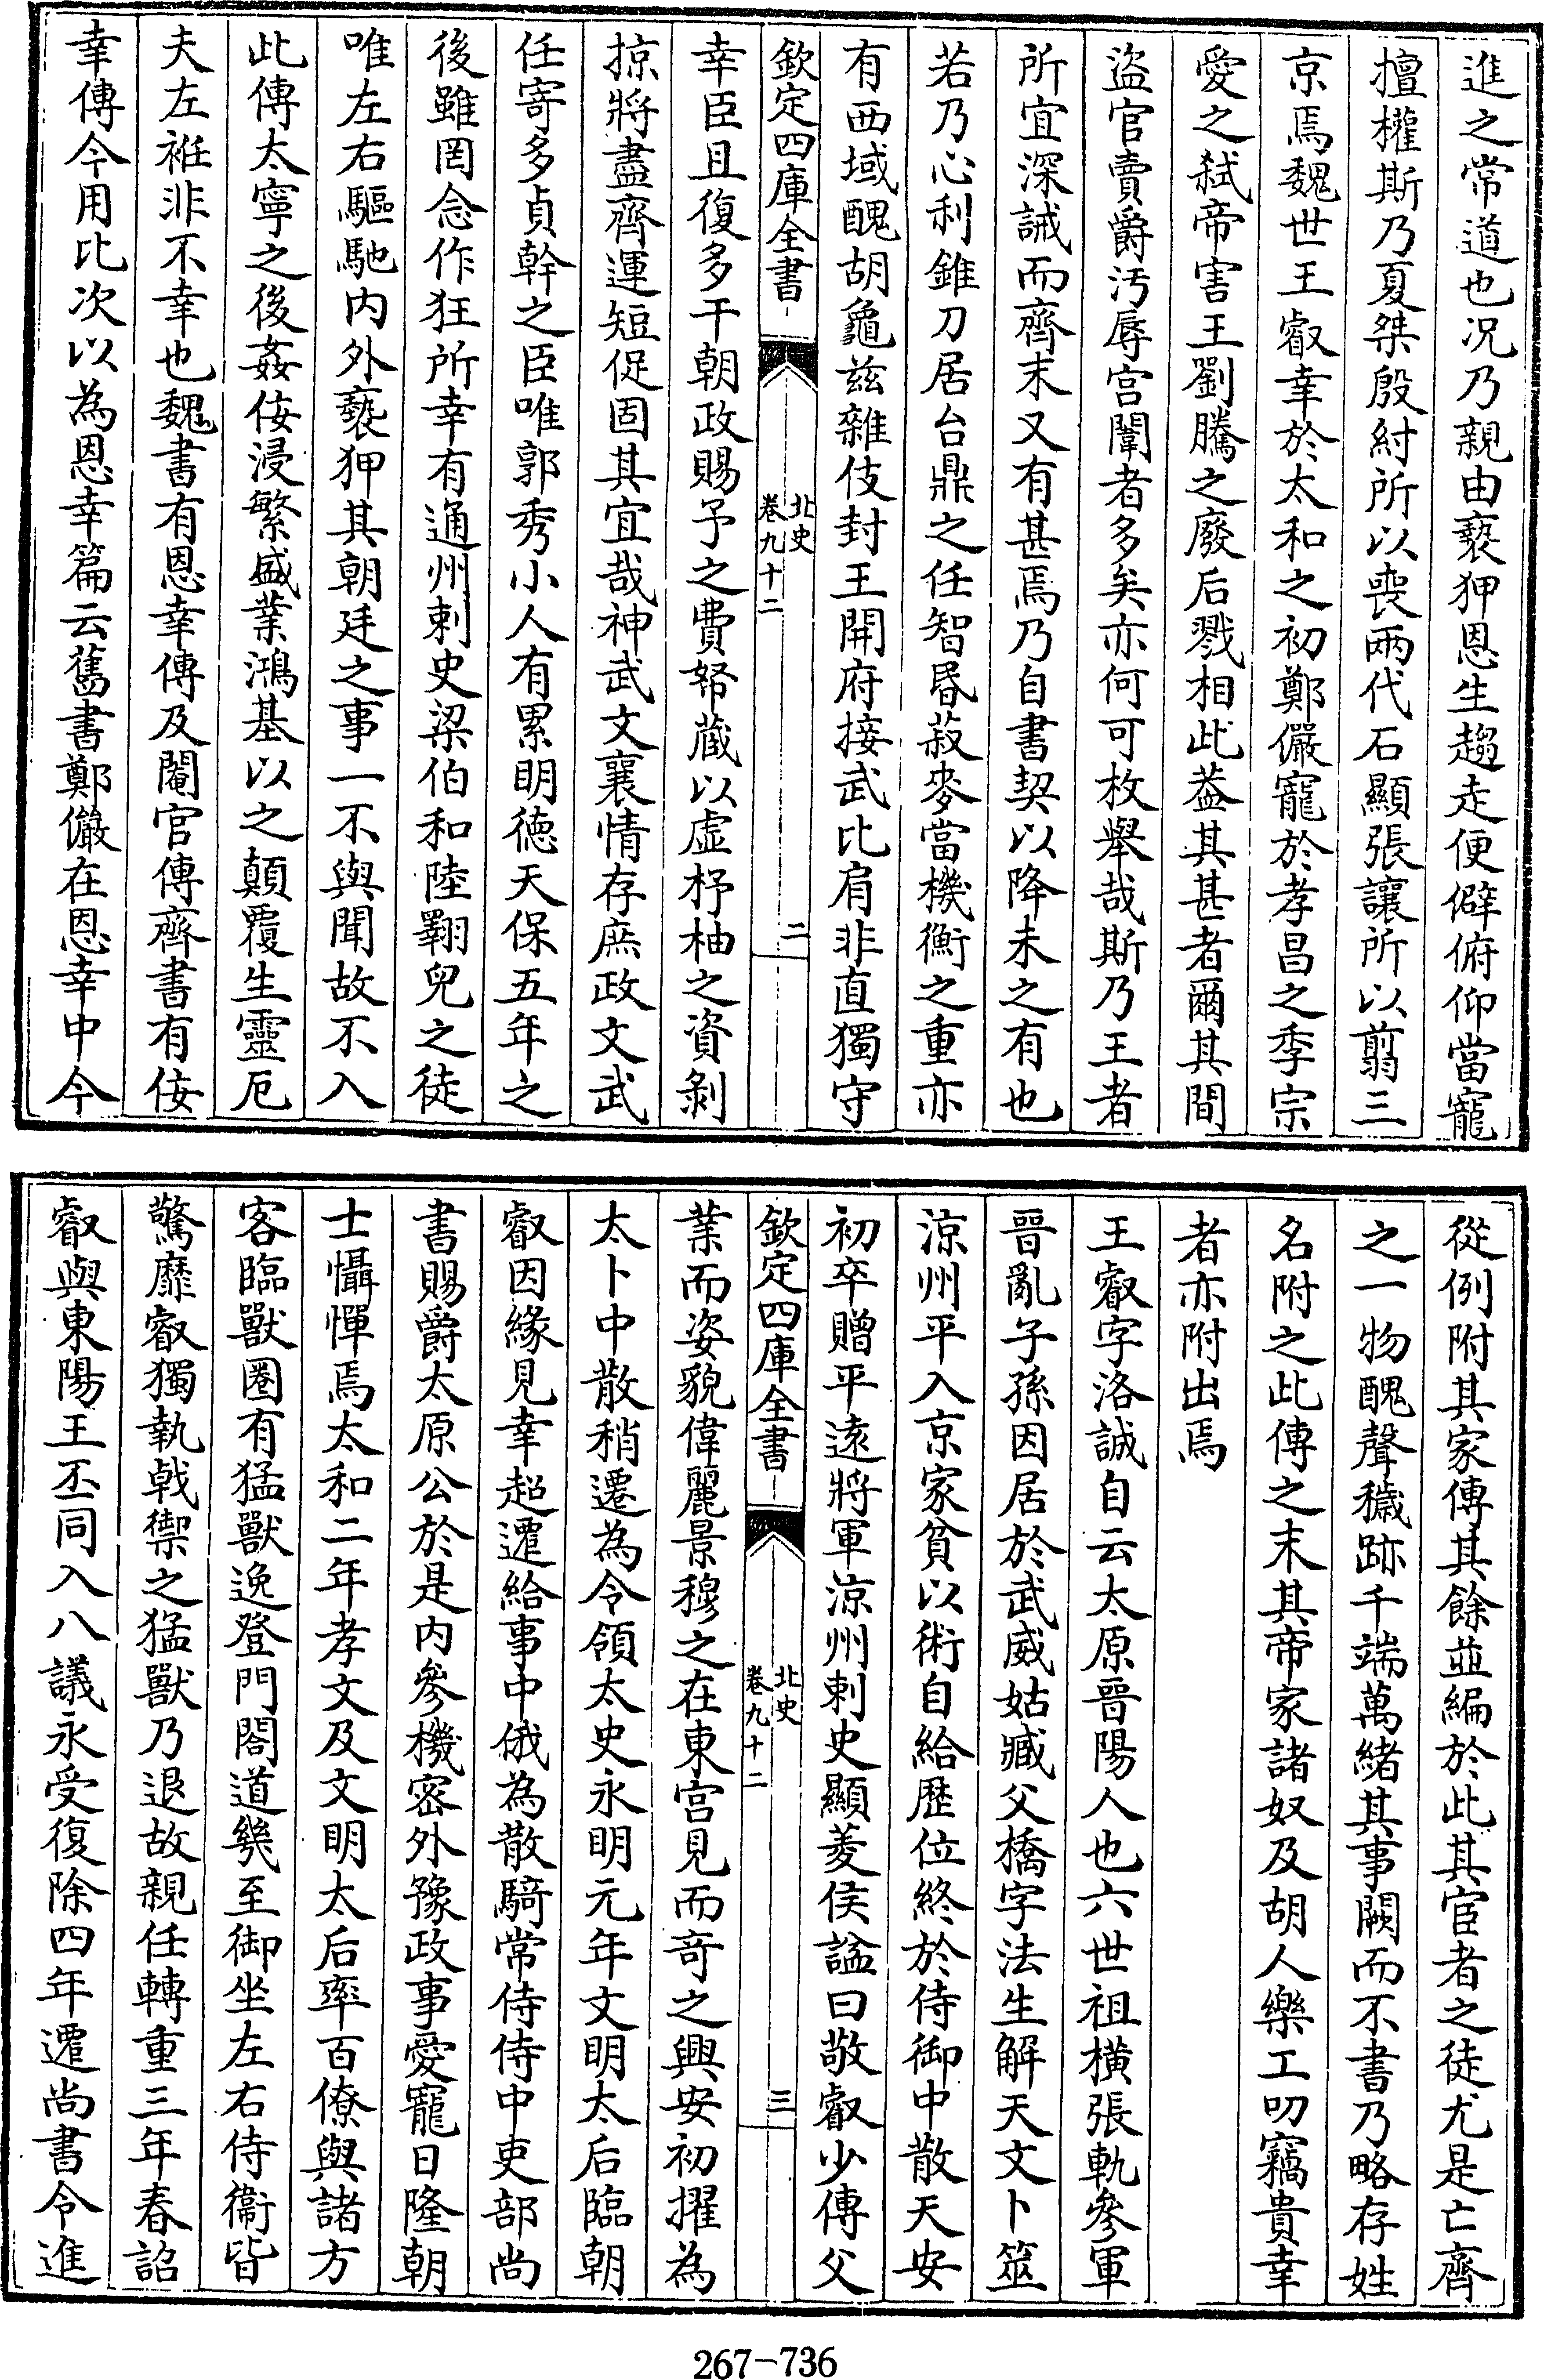 進之常道也况乃親由褻狎恩生趨走便僻俯仰當寵
擅權斯乃夏桀殷紂所以喪兩代石顯張讓所以翦三
京焉魏世王叡幸於太和之初鄭儼寵於孝昌之季宗
愛之弑帝害王劉騰之廢后戮相此葢其甚者爾其間
盜官賣爵汚辱宫闈者多矣亦何可枚舉哉斯乃王者
所宜深誡而齊末又有甚焉乃自書契以降未之有也
若乃心利錐刀居台鼎之任智昏菽麥當機衡之重亦
有西域醜胡龜兹雜伎封王開府接武比肩非直獨守
欽定四庫全書
北史
卷九十二
二
幸臣且復多干朝政賜予之費帑藏以虚杼柚之資剝
掠將盡齊運短促固其宜哉神武文襄情存庶政文武
任寄多貞幹之臣唯郭秀小人有累明德天保五年之
後雖罔念作狂所幸有通州刺史梁伯和陸䎘兒之徒
唯左右驅馳内外褻狎其朝廷之事一不與聞故不入
此傳太寧之後姦佞浸繁盛業鴻基以之顛覆生靈厄
夫左袵非不幸也魏書有恩幸傳及閹官傳齊書有佞
幸傳今用比次以為恩幸篇云舊書鄭儼在恩幸中今
從例附其家傳其餘並編於此其宦者之徒尤是亡齊
之一物醜聲穢跡千端萬緒其事闕而不書乃略存姓
名附之此傳之末其帝家諸奴及胡人樂工叨竊貴幸
者亦附出焉
王叡字洛誠自云太原晉陽人也六世祖横張軌參軍
晉亂子孫因居於武威姑臧父橋字法生解天文卜筮
涼州平入京家貧以術自給歴位終於侍御中散天安
初卒贈平逺將軍涼州刺史顯菱侯諡曰敬叡少傳父
欽定四庫全書
北史
卷九十二
三
業而姿貌偉麗景穆之在東宫見而竒之興安初擢為
太卜中散稍遷為令領太史永明元年文明太后臨朝
叡因緣見幸超遷給事中俄為散騎常侍侍中吏部尚
書賜爵太原公於是内參機密外豫政事愛寵日隆朝
士慴憚焉太和二年孝文及文明太后率百僚與諸方
客臨獸圈有猛獸逸登門閣道幾至御坐左右侍衞皆
驚靡叡獨執戟禦之猛獸乃退故親任轉重三年春詔
叡與東陽王丕同入八議永受復除四年遷尚書令進
267-736